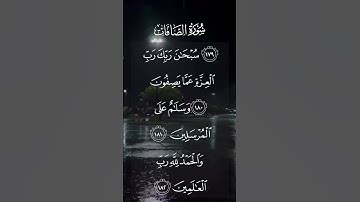 سُورَةُ الصَّافَّاتِ
١٧٩ سُبْحَٰنَ رَبِّكَ رَبِّ
ٱلْعِزَّةِ عَمَّا يَصِفُونَ
١٨٠ وَسَلَٰمٌ عَلَى
ٱلْمُرْسَلِينَ ١٨١
وَٱلْحَمْدُ لِلَّهِ رَبِّ
ٱلْعَٰلَمِينَ ١٨٢